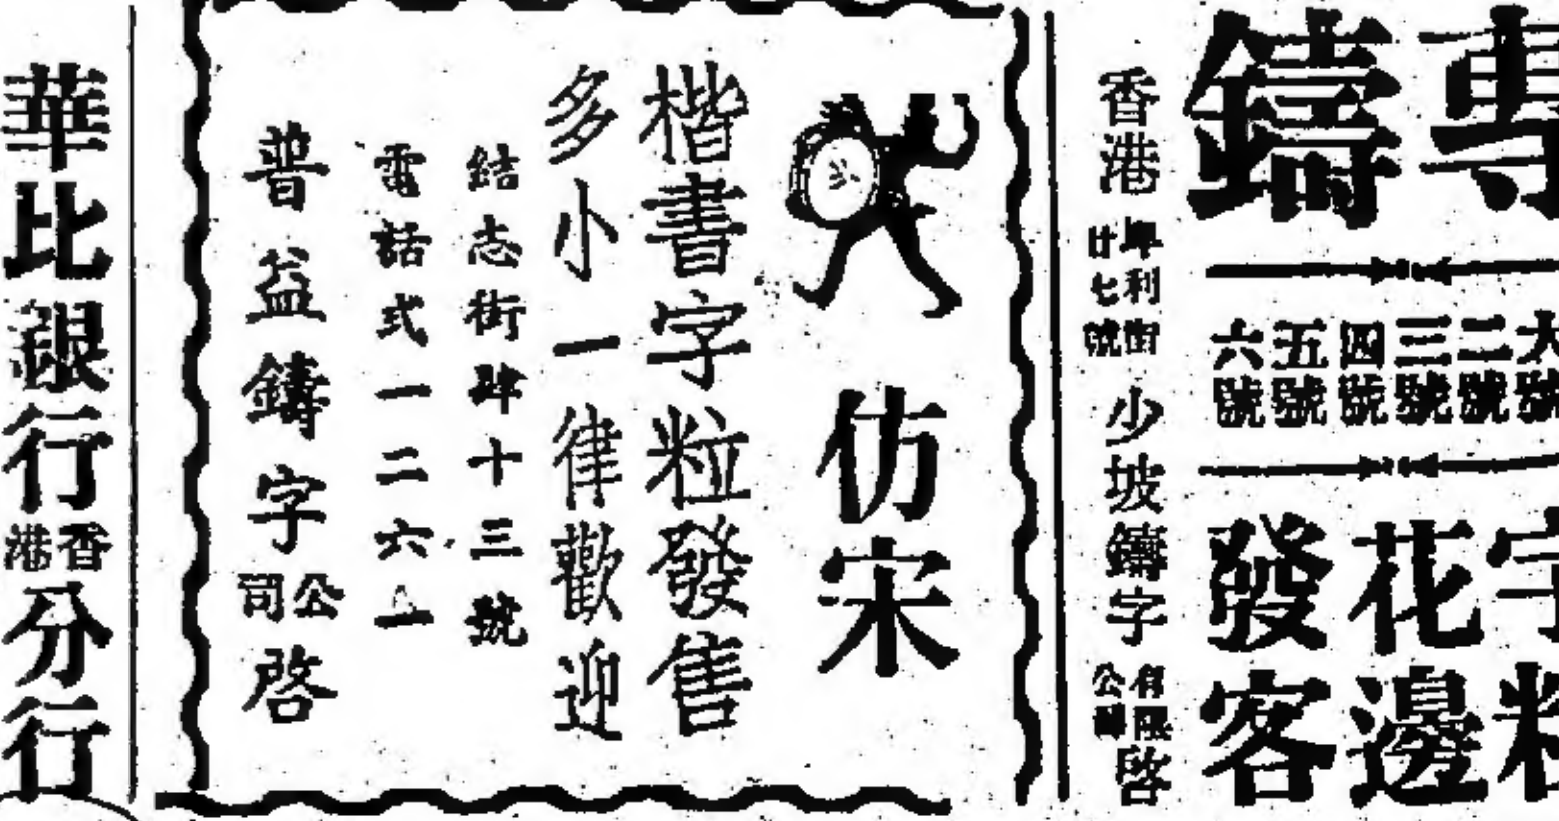 專鑄
大號
二號
三號
四號
五號
六號
字粒
花邊
發客
香港
利街
廿七號
少坡鑄字
有限
公司
啓
仿宋
楷書字粒發售
多小一律歡迎
結志街肆十三號
電話式一二六一
普益鑄字公司啓
華比銀行香港分行